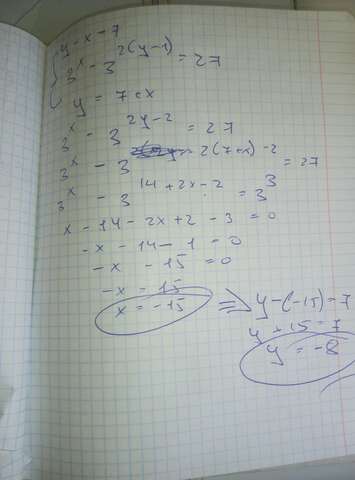 y - x - 7
3^x - 3^{2(y-1)} = 27
y = 7 + x
3^x - 3^{2y-2} = 27
3^x - 3^{2(7+x)-2} = 27
3^x - 3^{14+2x-2} = 3^3
x - 14 - 2x + 2 - 3 = 0
-x - 14 - 1 = 0
-x - 15 = 0
-x = 15
x = -15
=> y - (-15) = 7
y + 15 = 7
y = -8